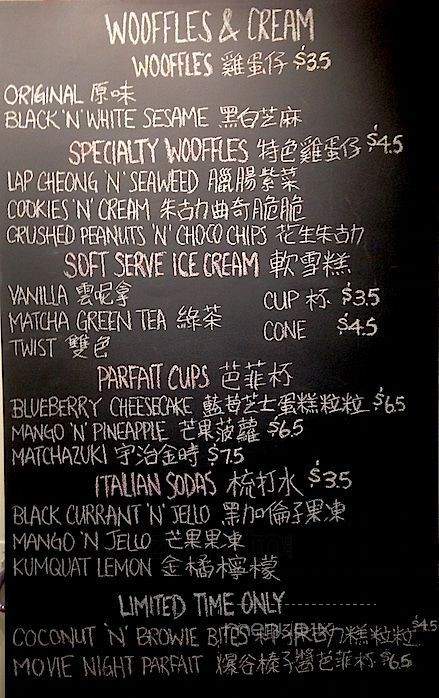 WOOFFLES & CREAM
WOOFFLES 雞蛋仔 $3.5
ORIGINAL 原味
BLACK 'N' WHITE SESAME 黑白芝麻
SPECIALTY WOOFFLES 特色雞蛋仔 $4.5
LAP CHEONG 'N' SEAWEED 臘腸紫菜
COOKIES 'N' CREAM 朱古力曲奇脆脆
CRUSHED PEANUTS 'N' CHOCO CHIPS 花生朱古力
SOFT SERVE ICE CREAM 軟雪糕
VANILLA 雲呢拿 CUP 杯 $3.5
MATCHA GREEN TEA 綠茶 CONE $4.5
TWIST 雙色
PARFAIT CUPS 芭菲杯
BLUEBERRY CHEESECAKE 藍莓芝士蛋糕粒粒 $6.5
MANGO 'N' PINEAPPLE 芒果菠蘿 $6.5
MATCHAZUKI 宇治金時 $7.5
ITALIAN SODAS 梳打水 $3.5
BLACK CURRANT 'N' JELLO 黑加倫子果凍
MANGO 'N JELLO 芒果果凍
KUMQUAT LEMON 金橘檸檬
LIMITED TIME ONLY
COCONUT 'N' BROWIE BITES 椰子朱古力糕粒粒 $4.5
MOVIE NIGHT PARFAIT 爆谷榛子醬芭菲杯 $6.5